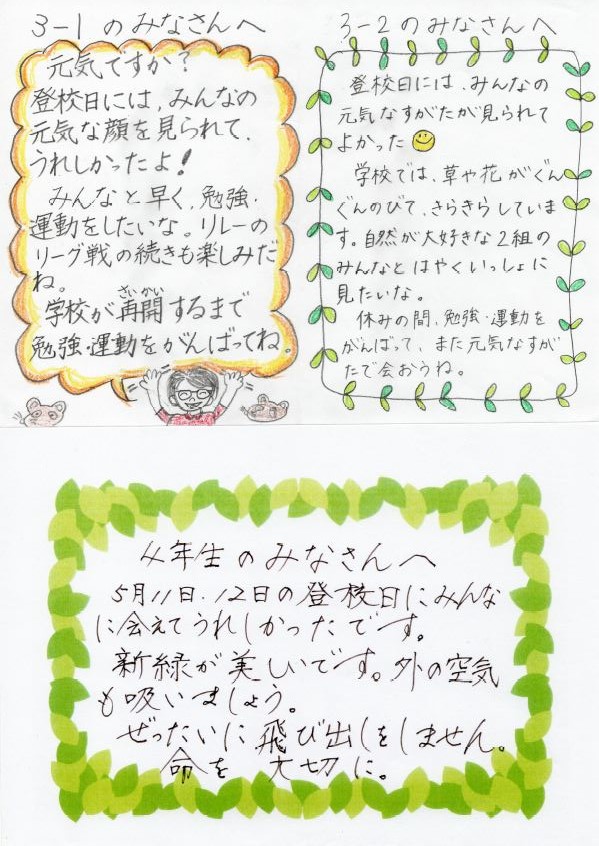 3-1のみなさんへ
元気ですか?
登校日には、みんなの
元気な顔を見られて、
うれしかったよ!
みんなと早く、勉強・
運動をしたいな。リレーの
リーグ戦の続きも楽しみだ
ね。
さいかい
学校が再開するまで
勉強・運動をがんばってね。
3-2のみなさんへ
登校日には、みんなの
元気なすがたが見られて
よかった
学校では、草や花がぐん
ぐんのびて、きらきらしていま
す。自然が大好きな2組の
みんなとはやくいっしょに
見たいな。
休みの間、勉強・運動を
がんばって、また元気なすが
たで会おうね。
4年生のみなさんへ
5月11日・12日の登校日にみんな
に会えてうれしかったです。
新緑が美しいです。外の空気
も吸いましょう。
ぜったいに飛び出しをしません。
命を大切に。